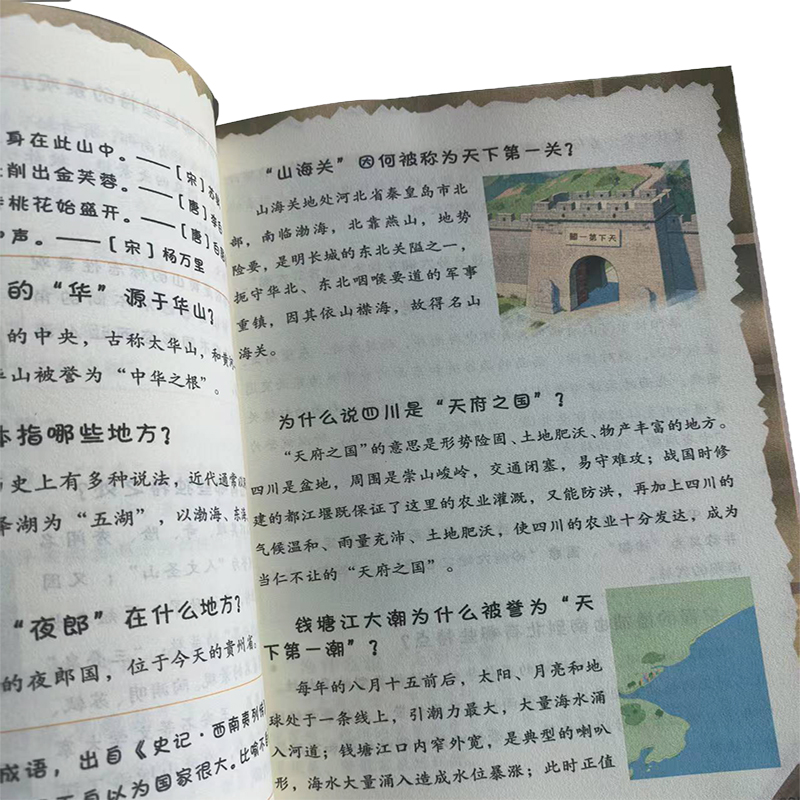 身在此山中。——［宋］苏
削出金芙蓉。——［唐］李白
桃花始盛开。——［唐］白
声。——［宋］杨万里
的“华”源于华山？
的中央，古称太华山，和黄
山被誉为“中华之根”。
体指哪些地方？
史上有多种说法，近代通常
泽湖为“五湖”，以渤海、东海
“夜郎”在什么地方？
的夜郎国，位于今天的贵州省。
成语，出自《史记·西南夷列传
自以为国家很大。比喻不
“山海关”因何被称为天下第一关？
山海关地处河北省秦皇岛市北
部，南临渤海，北靠燕山，地势
险要，是明长城的东北关隘之一，
扼守华北、东北咽喉要道的军事
重镇，因其依山襟海，故得名山
海关。
天下第一關
为什么说四川是“天府之国”？
“天府之国”的意思是形势险固、土地肥沃、物产丰富的地方。
四川是盆地，周围是崇山峻岭，交通闭塞，易守难攻；战国时修
建的都江堰既保证了这里的农业灌溉，又能防洪，再加上四川的
气候温和、雨量充沛、土地肥沃，使四川的农业十分发达，成为
当仁不让的“天府之国”。
钱塘江大潮为什么被誉为“天
下第一潮”？
每年的八月十五前后，太阳、月亮和地
球处于一条线上，引潮力最大，大量海水涌
入河道；钱塘江口内窄外宽，是典型的喇叭
形，海水大量涌入造成水位暴涨；此时正值